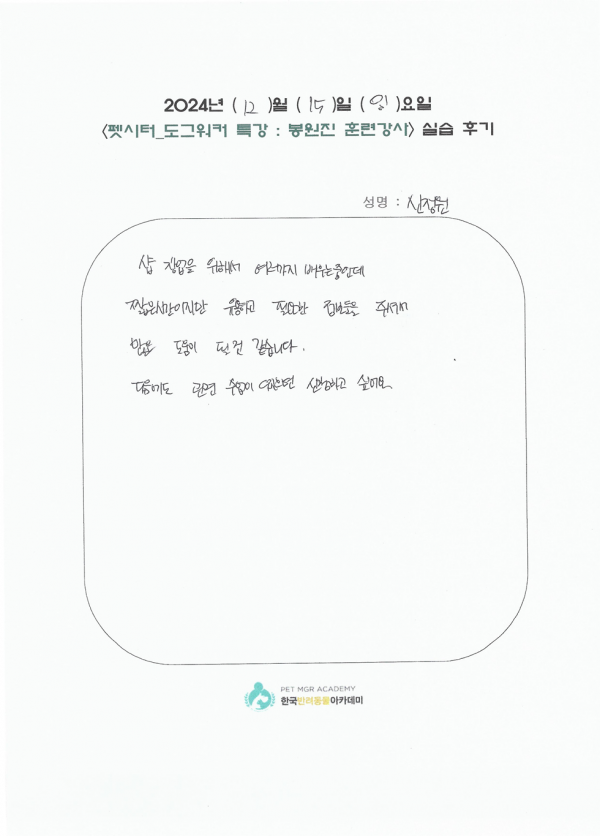 2024년 (12)월 (15)일 (일)요일
<펫시터_도그워커 특강 : 봉원진 훈련강사> 실습 후기
성명 : 신정원
샵 창업을 위해서 여러가지 배우는중인데
짧은시간이지만 유용하고 필요한 정보들을 주셔서
많은 도움이 된 것 같습니다.
다음에도 관련 수업이 있으면 신청하고 싶어요
PET MGR ACADEMY
한국반려동물아카데미